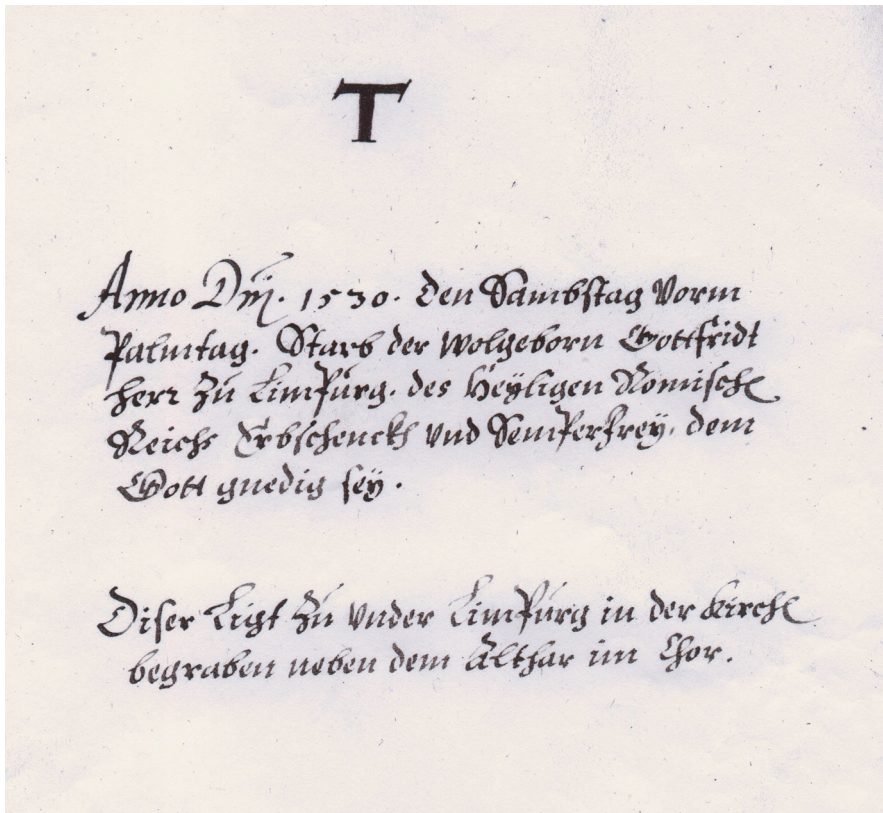 T
Anno Dnj. 1530. den Sambstag vorm
Palmtag. Starb der wolgeborn Gottfridt
herr zu Limpurg. des Heÿligen Römisch
Reichs Erbschenckh vnd Semperfreÿ. dem
Gott gnedig seÿ.
Diser Ligt zu vnder Limpurg in der Kirch
begraben neben dem Althar im Chor.